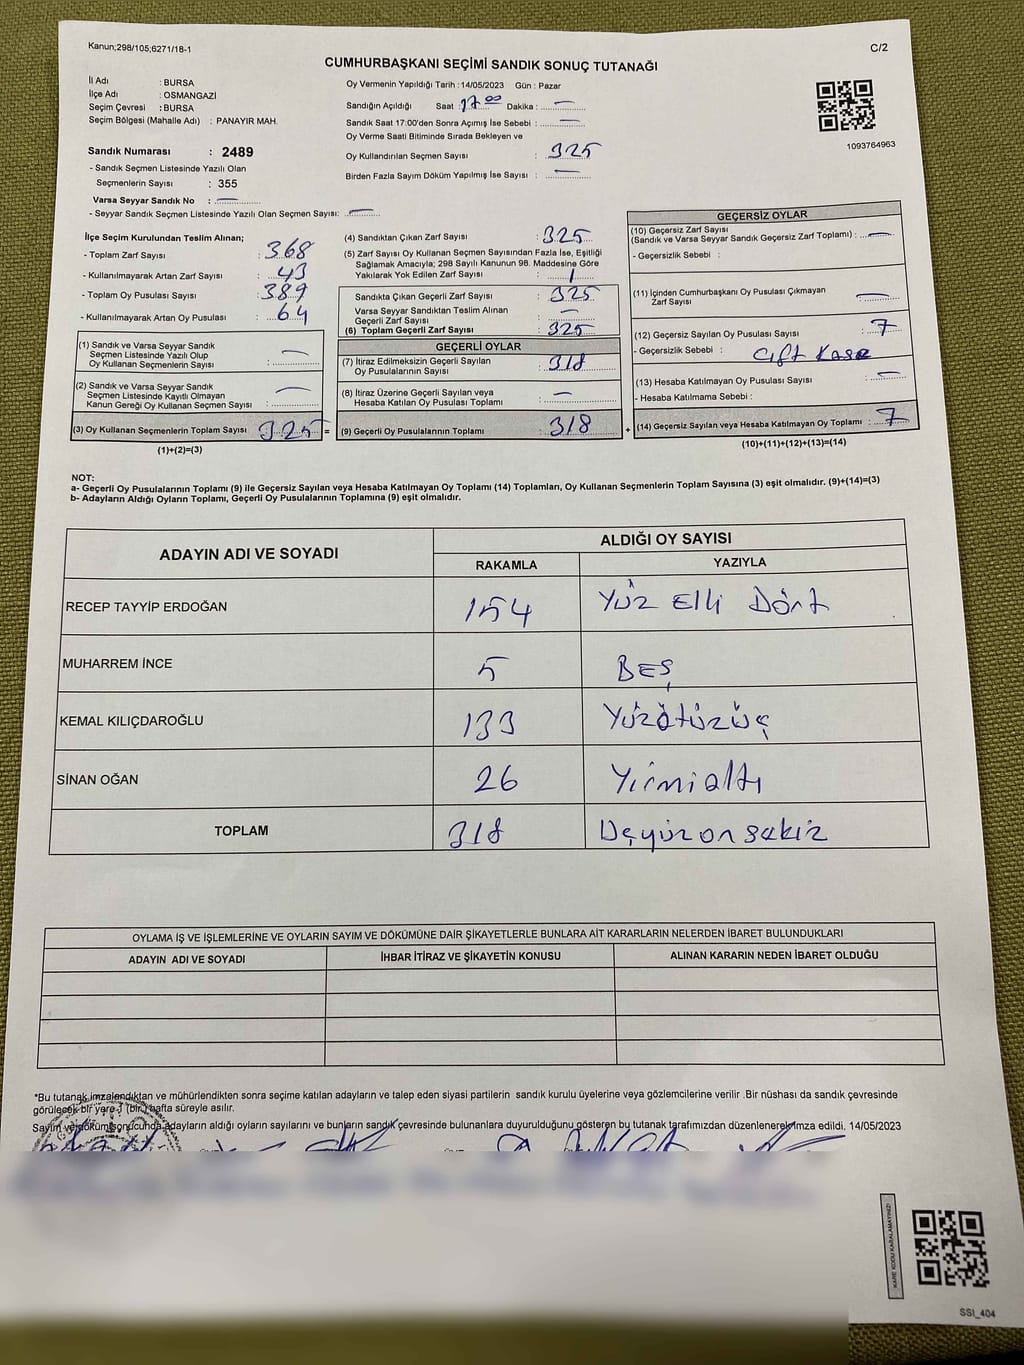 Kanun;298/105;6271/18-1
C/2
CUMHURBAŞKANI SEÇİMİ SANDIK SONUÇ TUTANAĞI
İl Adı : BURSA
İlçe Adı : OSMANGAZİ
Seçim Çevresi : BURSA
Seçim Bölgesi (Mahalle Adı) : PANAYIR MAH.
Sandık Numarası : 2489
- Sandık Seçmen Listesinde Yazılı Olan
Seçmenlerin Sayısı : 355
Varsa Seyyar Sandık No : —
- Seyyar Sandık Seçmen Listesinde Yazılı Olan Seçmen Sayısı: —
Oy Vermenin Yapıldığı Tarih :14/05/2023 Gün : Pazar
Sandığın Açıldığı Saat : 17 00 Dakika : —
Sandık Saat 17:00'den Sonra Açımış İse Sebebi : —
Oy Verme Saati Bitiminde Sırada Bekleyen ve
Oy Kullandırılan Seçmen Sayısı : 325
Birden Fazla Sayım Döküm Yapılmış İse Sayısı : —
1093764963
İlçe Seçim Kurulundan Teslim Alınan;
- Toplam Zarf Sayısı : 368
- Kullanılmayarak Artan Zarf Sayısı : 43
- Toplam Oy Pusulası Sayısı : 389
- Kullanılmayarak Artan Oy Pusulası : 64
(1) Sandık ve Varsa Seyyar Sandık
Seçmen Listesinde Yazılı Olup
Oy Kullanan Seçmenlerin Sayısı : —
(2) Sandık ve Varsa Seyyar Sandık
Seçmen Listesinde Kayıtlı Olmayan
Kanun Gereği Oy Kullanan Seçmen Sayısı : —
(3) Oy Kullanan Seçmenlerin Toplam Sayısı : 325 =
(1)+(2)=(3)
(4) Sandıktan Çıkan Zarf Sayısı : 325
(5) Zarf Sayısı Oy Kullanan Seçmen Sayısından Fazla İse, Eşitliği
Sağlamak Amacıyla; 298 Sayılı Kanunun 98. Maddesine Göre
Yakılarak Yok Edilen Zarf Sayısı : 1
Sandıkta Çıkan Geçerli Zarf Sayısı : 325
Varsa Seyyar Sandıktan Teslim Alınan
Geçerli Zarf Sayısı : —
(6) Toplam Geçerli Zarf Sayısı : 325
GEÇERLİ OYLAR
(7) İtiraz Edilmeksizin Geçerli Sayılan
Oy Pusulalarının Sayısı : 318
(8) İtiraz Üzerine Geçerli Sayılan veya
Hesaba Katılan Oy Pusulaları Toplamı : —
(9) Geçerli Oy Pusulalarının Toplamı : 318 +
GEÇERSİZ OYLAR
(10) Geçersiz Zarf Sayısı
(Sandık ve Varsa Seyyar Sandık Geçersiz Zarf Toplamı) : —
- Geçersizlik Sebebi :
(11) İçinden Cumhurbaşkanı Oy Pusulası Çıkmayan
Zarf Sayısı : —
(12) Geçersiz Sayılan Oy Pusulası Sayısı : 7
- Geçersizlik Sebebi : Çift Kaşe
(13) Hesaba Katılmayan Oy Pusulası Sayısı : —
- Hesaba Katılmama Sebebi :
(14) Geçersiz Sayılan veya Hesaba Katılmayan Oy Toplamı : 7
(10)+(11)+(12)+(13)=(14)
NOT:
a- Geçerli Oy Pusulalarının Toplamı (9) ile Geçersiz Sayılan veya Hesaba Katılmayan Oy Toplamı (14) Toplamları, Oy Kullanan Seçmenlerin Toplam Sayısına (3) eşit olmalıdır. (9)+(14)=(3)
b- Adayların Aldığı Oyların Toplamı, Geçerli Oy Pusulalarının Toplamına (9) eşit olmalıdır.
ADAYIN ADI VE SOYADI ALDIĞI OY SAYISI
RAKAMLA YAZIYLA
RECEP TAYYİP ERDOĞAN 154 Yüz Elli Dört
MUHARREM İNCE 5 BEŞ
KEMAL KILIÇDAROĞLU 133 Yüzotuzüç
SİNAN OĞAN 26 Yirmialtı
TOPLAM 318 Üçyüzonsekiz
OYLAMA İŞ VE İŞLEMLERİNE VE OYLARIN SAYIM VE DÖKÜMÜNE DAİR ŞİKAYETLERLE BUNLARA AİT KARARLARIN NELERDEN İBARET BULUNDUKLARI
ADAYIN ADI VE SOYADI İHBAR İTİRAZ VE ŞİKAYETİN KONUSU ALINAN KARARIN NEDEN İBARET OLDUĞU
*Bu tutanak imzalendıktan ve mühürlendikten sonra seçime katılan adayların ve talep eden siyasi partilerin sandık kurulu üyelerine veya gözlemcilerine verilir .Bir nüshası da sandık çevresinde
görülecek bir yere 1 (bir) hafta süreyle asılır.
Sayım ve döküm sonucunda adayların aldığı oyların sayılarını ve bunların sandık çevresinde bulunanlara duyurulduğunu gösteren bu tutanak tarafımızdan düzenlenerek imza edildi. 14/05/2023
KARE KODU KARALAMAYINIZ!
SSI_404